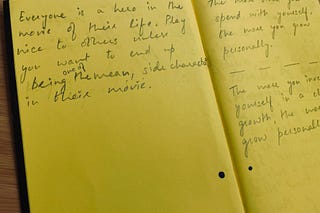 Everyone is a hero in the
movie of their life. Play
nice to others unless
you want to end up
being one of the mean, side character
in their movie.
spend with yourself,
the more you grow
personally.
The more you inves
yourself in a
growth, the mo
grow personall